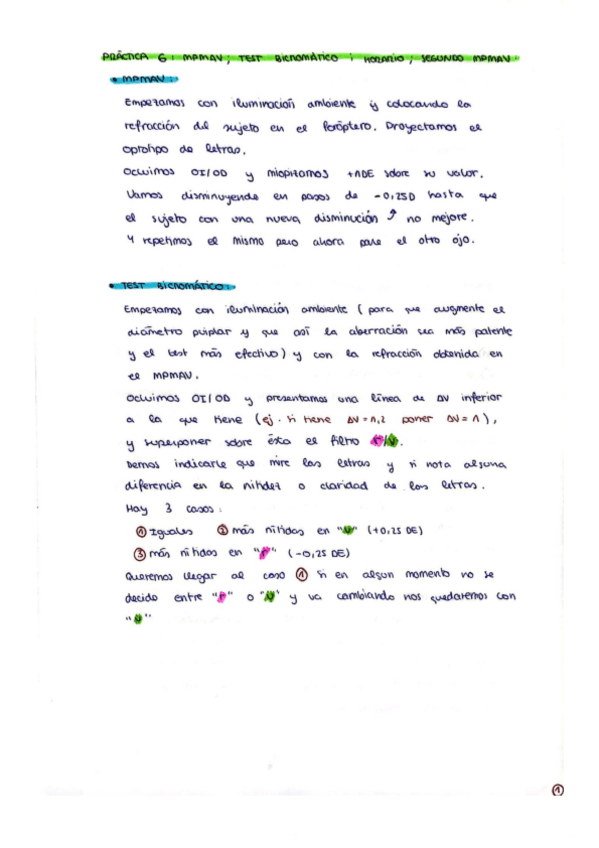 PRÁCTICA 6: MPMAV; TEST BICROMÁTICO; HORARIO; SEGUNDO MPMAV.
• MPMAV:
Empezamos con iluminación ambiente y colocando la
refracción del sujeto en el foróptero. Proyectamos el
optotipo de letras.
Ocluimos OI/OD y miopizamos +1DE sobre su valor.
Vamos disminuyendo en pasos de -0,25D hasta que
el sujeto con una nueva disminución no mejore.
Y repetimos el mismo pero ahora para el otro ojo.
• TEST BICROMÁTICO:
Empezamos con iluminación ambiente (para que augmente el
diámetro pupilar y que así la aberración sea más patente
y el test más efectivo) y con la refracción obtenida en
el MPMAV.
Ocluimos OI/OD y presentamos una línea de AV inferior
a la que tiene (ej. si tiene AV=1,2 poner AV=1),
y superponer sobre ésta el filtro r/V.
Demos indicarle que mire las letras y si nota alguna
diferencia en la nitidez o claridad de las letras.
Hay 3 casos:
① Iguales ② más nítidas en "V" (+0,25 DE)
③ más nítidas en "r" (-0,25 DE)
Queremos llegar al caso ① Si en algun momento no se
decide entre "r" o "V" y va cambiando nos quedaremos con
"V"
①